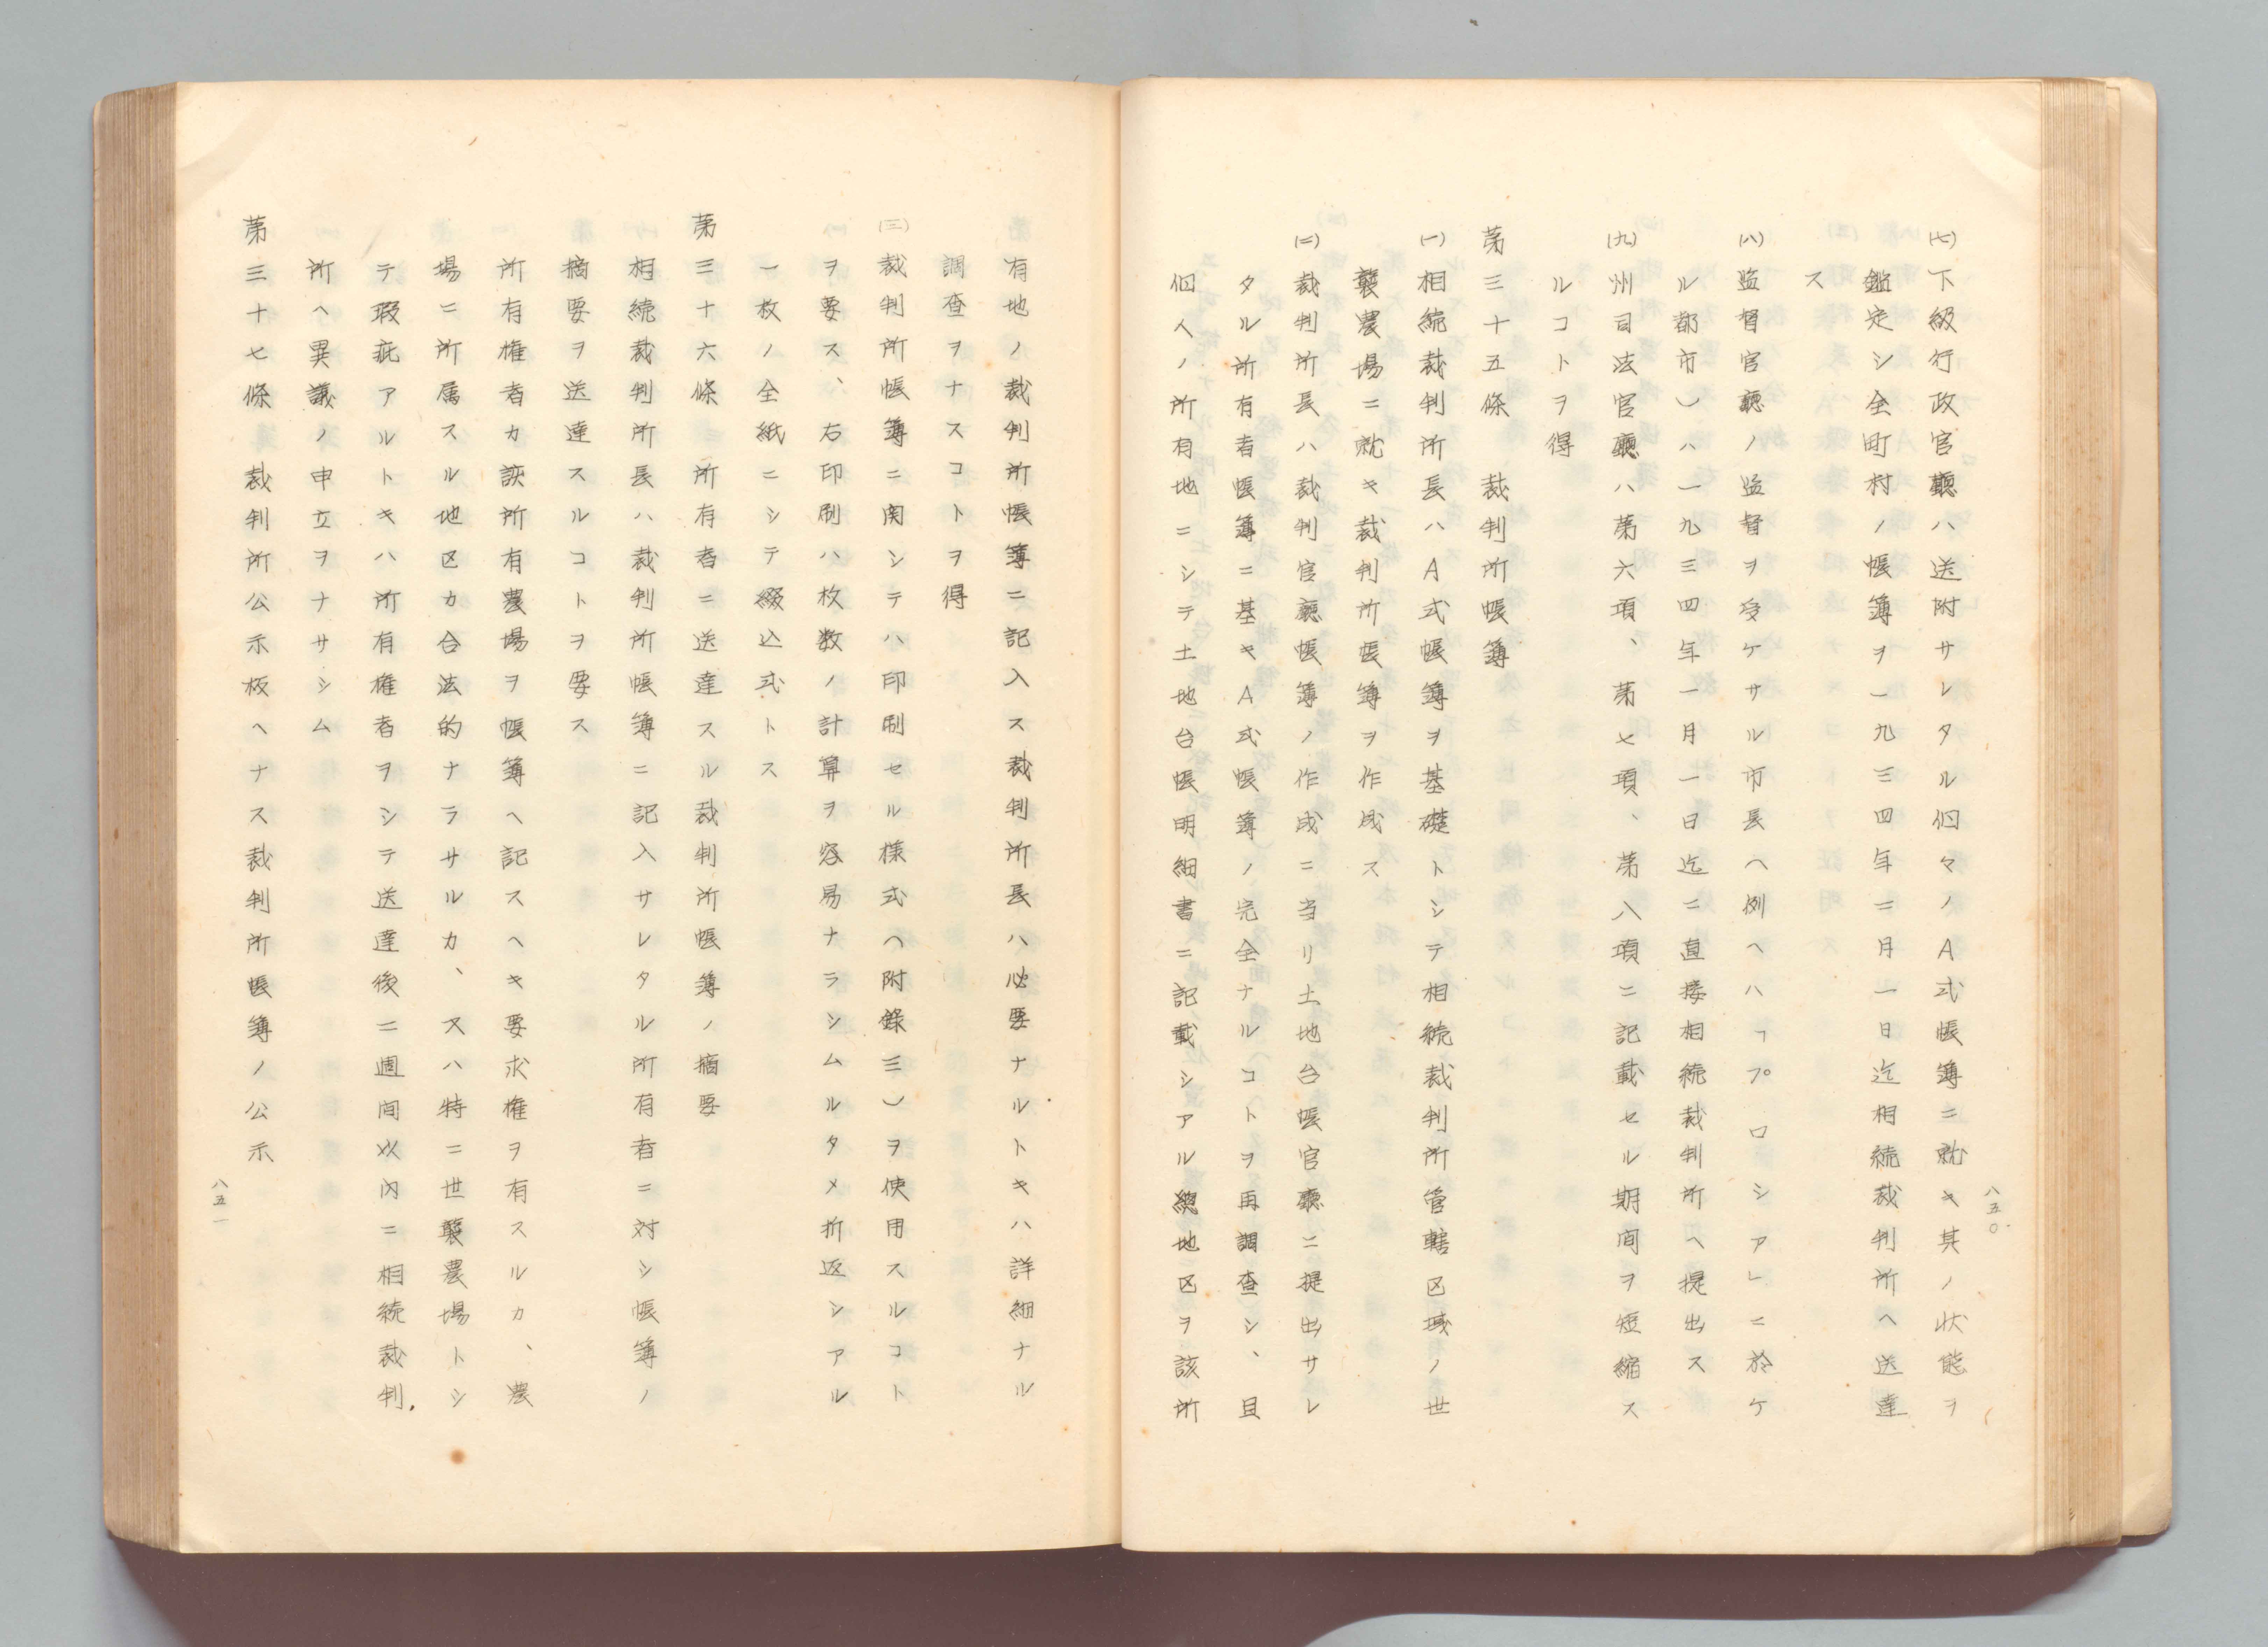 (七)下級行政官廳ハ送附サレタル個々ノA式帳簿ニ就キ其ノ状態ヲ
鑑定シ全町村ノ帳簿ヲ一九三四年二月一日迄相続裁判所ヘ送達
ス
(八)監督官廳ノ監督ヲ受ケサル市長(例ヘハ「プロシア」ニ於ケ
ル都市)ハ一九三四年一月一日迄ニ直接相続裁判所ヘ提出ス
(九)州司法官廳ハ第六項、第七項、第八項ニ記載セル期间ヲ短縮ス
ルコトヲ得
第三十五條 裁判所帳簿
(一)相続裁判所長ハA式帳簿ヲ基礎トシテ相続裁判所管轄区域ノ世
襲農場ニ就キ裁判所帳簿ヲ作成ス
(二)裁判所長ハ裁判官廳帳簿ノ作成ニ当リ土地台帳官廳ニ提出サレ
タル所有者帳簿ニ基キA式帳簿ノ完全ナルコトヲ再調查シ、且
個人ノ所有地ニシテ土地台帳明細書ニ記載シアル總地区ヲ該所
八五〇
有地ノ裁判所帳簿ニ記入ス裁判所長ハ必要ナルトキハ詳細ナル
調查ヲナスコトヲ得
(三)裁判所帳簿ニ関シテハ印刷セル様式(附錄三)ヲ使用スルコト
ヲ要ス、右印刷ハ枚数ノ計算ヲ容易ナラシムルタメ折返シアル
一枚ノ全紙ニシテ綴込式トス
第三十六條 所有者ニ送達スル裁判所帳簿ノ摘要
相続裁判所長ハ裁判所帳簿ニ記入サレタル所有者ニ対シ帳簿ノ
摘要ヲ送達スルコトヲ要ス
所有権者カ該所有農場ヲ帳簿ヘ記スヘキ要求権ヲ有スルカ、農
場ニ所属スル地区カ合法的ナラサルカ、又ハ特ニ世襲農場トシ
テ瑕疵アルトキハ所有権者ヲシテ送達後二週间以内ニ相続裁判
所ヘ異議ノ申立ヲナサシム
第三十七條 裁判所公示板ヘナス裁判所帳簿ノ公示
八五一